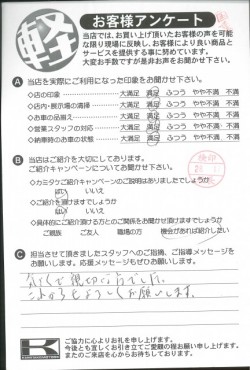 軽
お客様アンケート
当店では、お買い上げ頂いたお客様の声を可能
な限り現場に反映し、お客様により良い商品と
サービスを提供する事に努めています。
大変お手数ですが是非お声をお聞かせ下さい。
A 当店を実際にご利用になった印象をお聞かせ下さい。
◇店の印象 大満足 満足 ふつう やや不満 不満
◇店内・展示場の清掃 大満足 満足 ふつう やや不満 不満
◇お車の品揃え 大満足 満足 ふつう やや不満 不満
◇営業スタッフの対応 大満足 満足 ふつう やや不満 不満
◇納車時のお車の状態 大満足 満足 ふつう やや不満 不満
B 当店はご紹介を大切にしております。
ご紹介キャンペーンについてお聞かせ下さい。
◇カミタケご紹介キャンペーンのご説明はありましたでしょうか
はい いいえ
◇ご紹介を頂けますでしょうか
はい いいえ
◇具体的にご紹介頂ける方とのご関係をお聞かせ頂けますでしょうか
ご親族 ご友人 職場の方 機会があれば紹介したい
C 担当させて頂きましたスタッフへのご指摘、ご指導メッセージを
お願いします。応援メッセージもぜひお願いします。
親切な方でした。
これからもよろしくお願いします。
K
ご協力に心よりお礼を申し上げます。
今後とも宜しくお引き立てご愛顧の程お願い申し上げます。
またのご来店を心からお待ちしております。